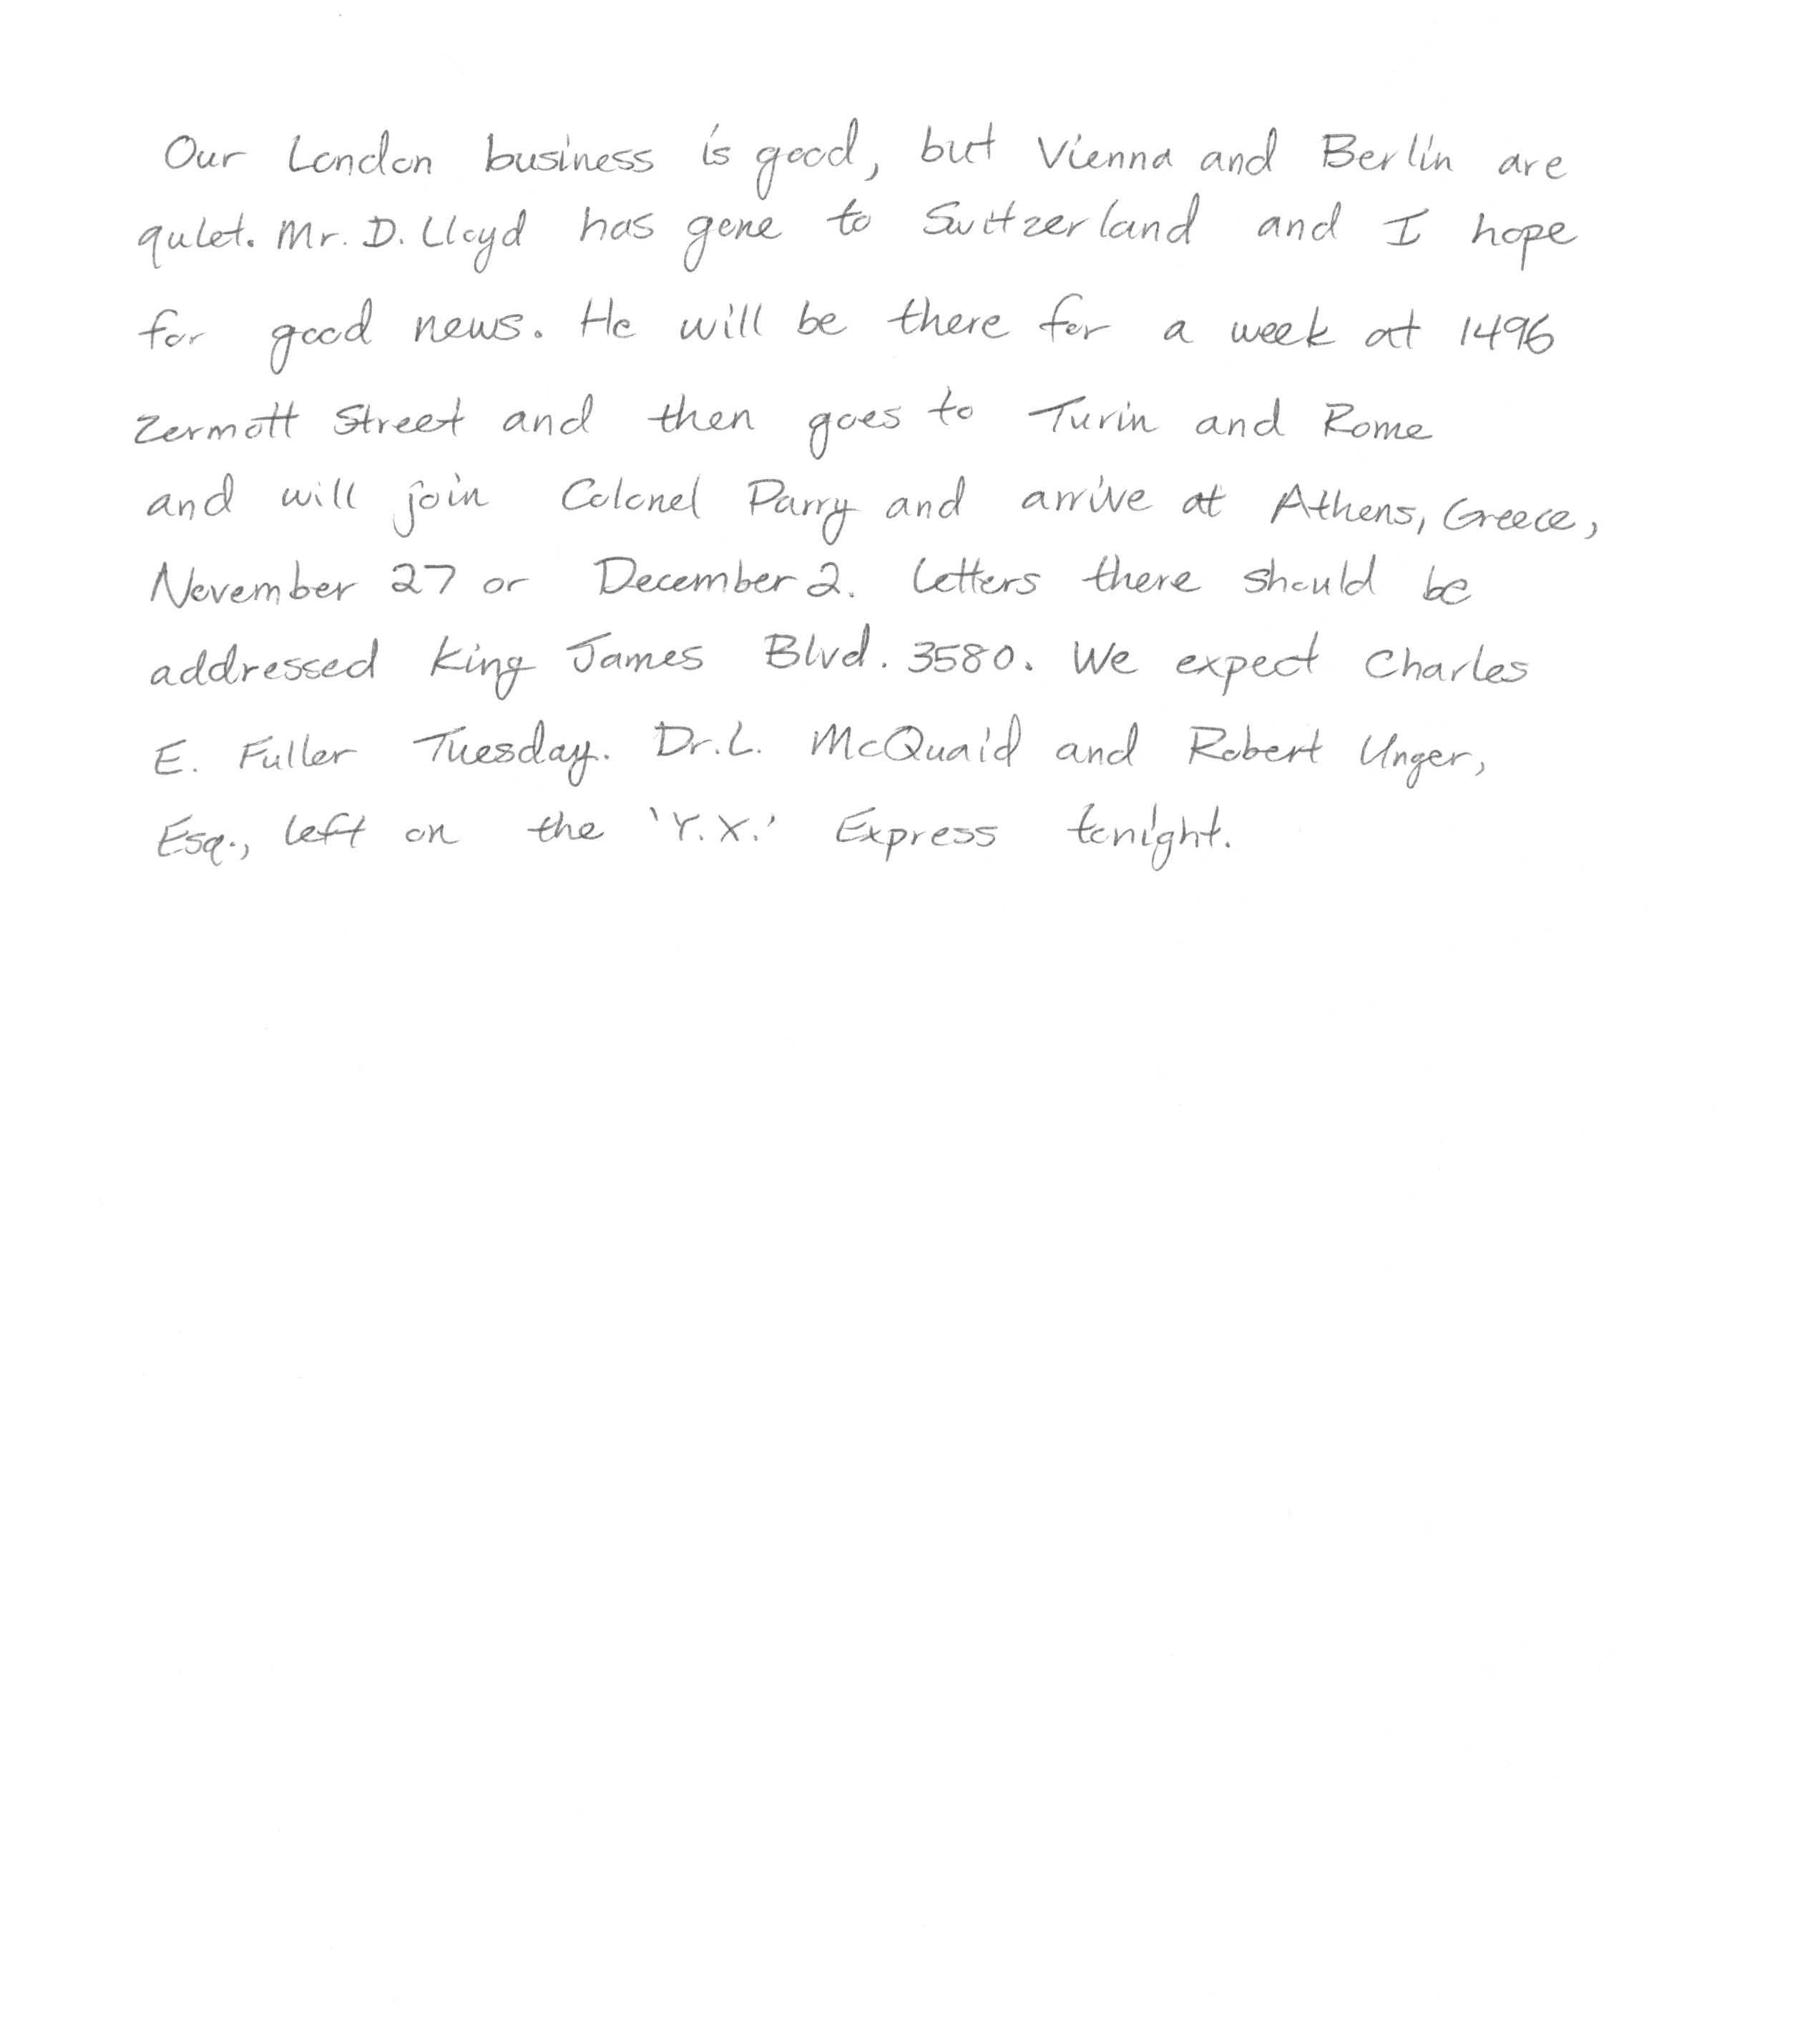 Our London business is good, but Vienna and Berlin are
quiet. Mr. D. Lloyd has gone to Switzerland and I hope
for good news. He will be there for a week at 1496
Zermott Street and then goes to Turin and Rome
and will join Colonel Parry and arrive at Athens, Greece,
November 27 or December 2. Letters there should be
addressed King James Blvd. 3580. We expect Charles
E. Fuller Tuesday. Dr. L. McQuaid and Robert Unger,
Esq., left on the 'Y.X.' Express tonight.